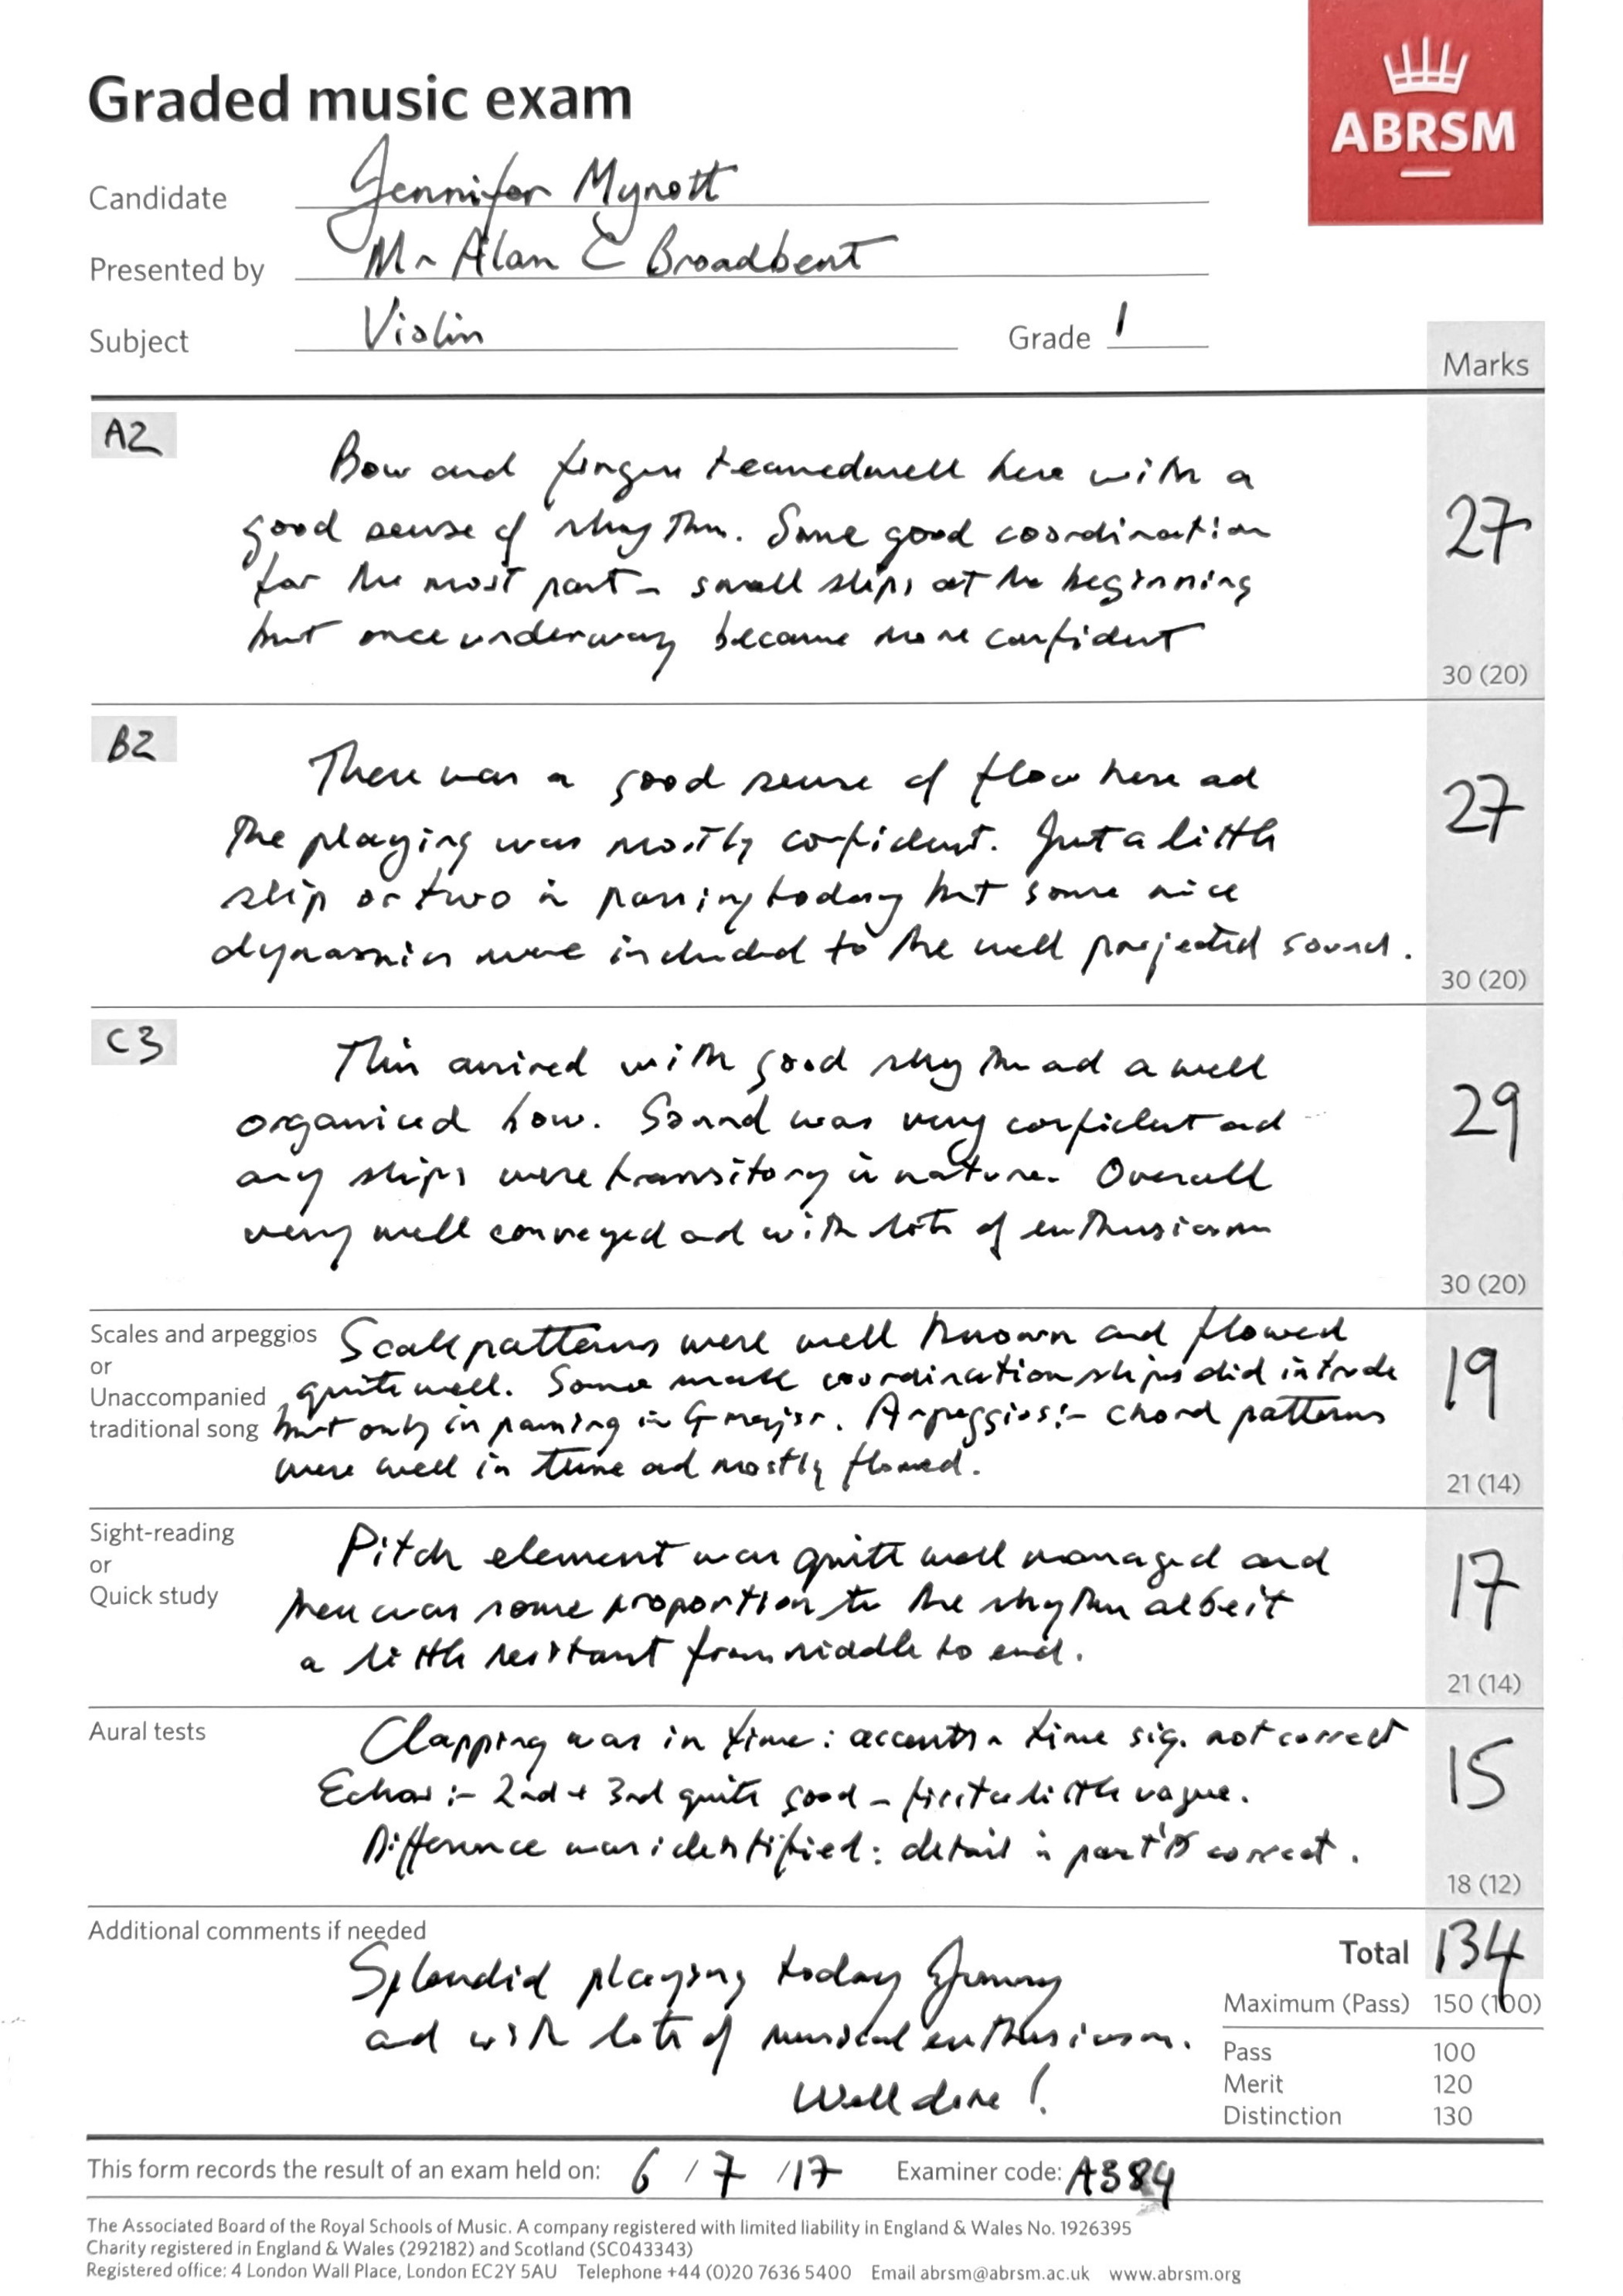 Graded music exam
ABRSM
Candidate Jennifer Mynott
Presented by Mr Alan C Broadbent
Subject Violin Grade 1
Marks
A2
Bow and fingers teamed well here with a
good sense of rhythm. Some good coordination
for the most part - small slips at the beginning
but once underway became more confident
27
30 (20)
B2
There was a good sense of flow here ad
the playing was mostly confident. Just a little
slip or two in passing today but some nice
dynamics were included to the well projected sound.
27
30 (20)
C3
This arrived with good rhythm ad a well
organised bow. Sound was very confident ad
any slips were transitory in nature. Overall
very well conveyed ad with lots of enthusiasm
29
30 (20)
Scales and arpeggios
or
Unaccompanied
traditional song
Scale patterns were well known and flowed
quite well. Some small coordination slips did intrude
but only in passing in G major. Arpeggios:- chord patterns
were well in tune ad mostly flowed.
19
21 (14)
Sight-reading
or
Quick study
Pitch element was quite well managed and
there was some proportion to the rhythm albeit
a little hesitant from middle to end.
17
21 (14)
Aural tests
Clapping was in time: accents time sig. not correct
Echos:- 2nd + 3rd quite good - first a little vague.
Difference was identified: detail in part 'D' correct.
15
18 (12)
Additional comments if needed
Splendid playing today Jenny
ad with lots of musical enthusiasm.
Well done!
Total 134
Maximum (Pass) 150 (100)
Pass 100
Merit 120
Distinction 130
This form records the result of an exam held on: 6 / 7 / 17 Examiner code: A384
The Associated Board of the Royal Schools of Music. A company registered with limited liability in England & Wales No. 1926395
Charity registered in England & Wales (292182) and Scotland (SC043343)
Registered office: 4 London Wall Place, London EC2Y 5AU Telephone +44 (0)20 7636 5400 Email abrsm@abrsm.ac.uk www.abrsm.org